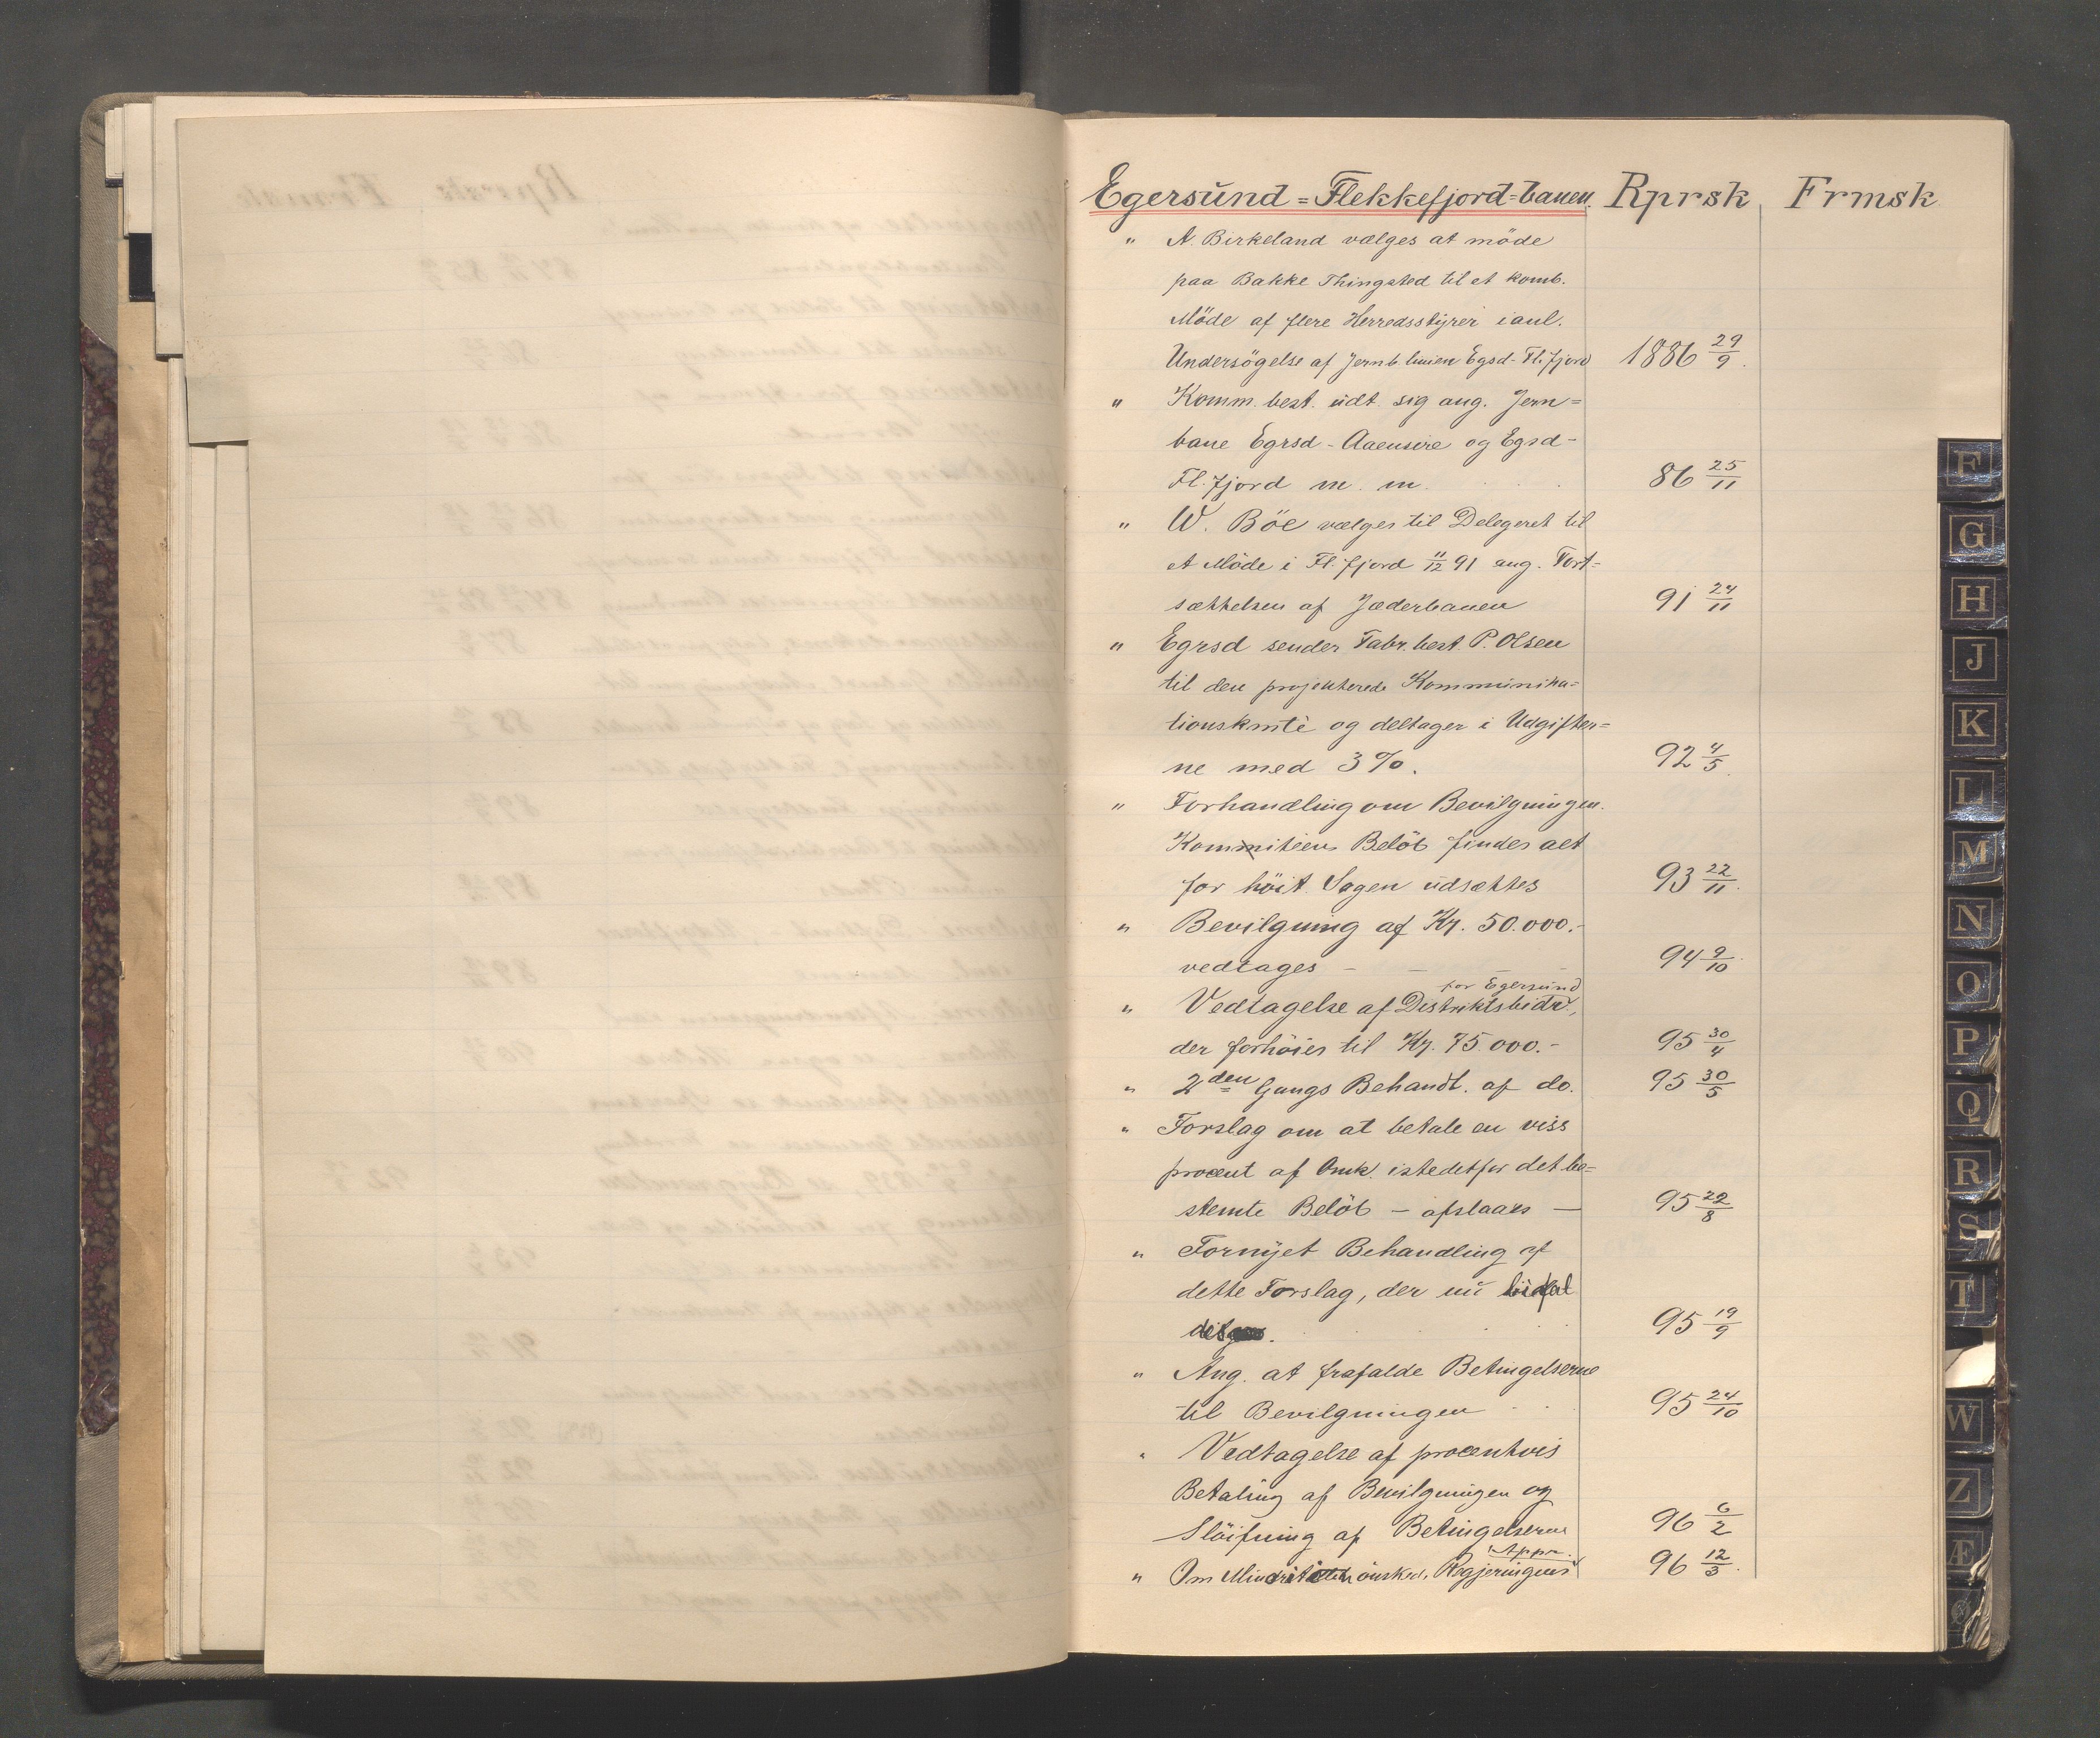 Egersünd = Flekkefjord-banen. Rprsk Frmsk
" A. Birkeland vælges at möde
paa Bakke Thingsted til et komb.
Möde af flere Herredsstÿrer i anl.
Undersögelse af Jernb. linien Egsd-Fl.fjord 1886 29/9.
" Komm. best. üdt. sig ang. Jern=
bane Egrsd - Aaensire og Egsd-
Fl.fjord m. m. 86 25/11
" W. Böe vælges til Delegeret til
et Möde i Fl.fjord 11/12 91 ang. Fort=
sættelsen af Jæderbanen 91 24/11
" Egrsd sender Fabr. best. P. Olsen
til den projekterede Kommünika=
tionskmtè og deltager i Udgifter=
ne med 3 %. 92 4/5.
" Forhandling om Bevilgningen.
Kommiteens Belöb findes alt
for höit. Sagen üdsættes 93 22/11.
" Bevilgning af Kr. 50.000.-
vedtages - - - 94 9/10.
for Egersünd
" Vedtagelse af Distriktsbidr.,
der forhöies til Kr. 75.000.- 95 30/4
" 2den Gangs Behandl. af do. 95 30/5
" Forslag om at betale en viss
procent af Omk. istedetfor det be=
stemte Belöb - afslaaes - 95 22/8
" Fornÿet Behandling af
dette Forslag, der nü bifal
des. 95 19/9
" Ang. at frafalde Betingelserne
til Bevilgningen 95 24/10
" Vedtagelse af procentvis
Betaling af Bevilgningen og
Slöifning af Betingelserne 96 6/2
Appr.
" Om Minoriteten önsked. Regjeringens 96 12/3.
F
G
H
J
K
L
M
N
O
P
Q
R
S
T
W
Z
Æ
Ø